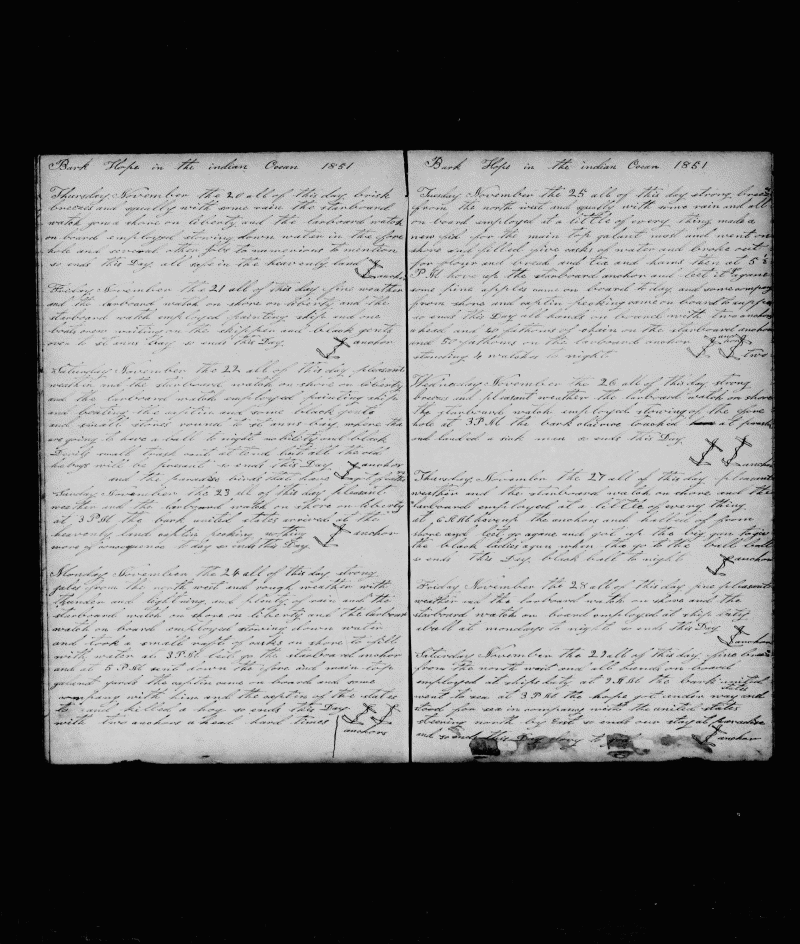 Bark Hope in the indian Ocean 1851
Thursday November the 20 all of this day brisk
breezes and squally with some rain the starboard
watch gone a shore on liberty and the larboard watch
on board employed stowing down water in the fore
hole and several other jobs to numerious to mention
so ends this Day all safe in the heavenly land
anchor
Friday November the 21 all of this day fine weather
and the larboard watch on shore on liberty and the
starboard watch employed painting ship and one
boats crew waiting on the skipper and black gents
over to st anns bay so ends this Day anchor
Saturday November the 22 all of this day pleasant
weather and the starboard watch on shore on liberty
and the larboard watch employed painting ship
and boating the captin and some black gents
and small stores round to st anns bay where tha
are going to have a ball to night nobility and black
Devils small trash cant attend but all the old
he boys will be present so ends this Day anchor
and the paradise birds that hans got feathers
Sunday November the 23 all of this day pleasant
weather and the larboard watch on shore on liberty
at 3 PM the bark united states arrived at the
heavenly land captin pecking nothing anchor
more of consequence to day so ends this Day
Monday November the 24 all of this day strong
gales from the north west and rough weather with
thunder and lightning and plenty of rain and the
starboard watch on shore on liberty and the larboard
watch on board employed stowing down water
and took a small raft of casks on shore to fill
with water at 3 PM let go the starboard anchor
and at 5 PM sent down the fore and main top
galant yards the captin came on board and some
company with him and the captin of the states
to and killed a hog so ends this Day
with two anchors ahead hard times
anchors
Bark Hope in the indian Ocean 1851
Tuesday November the 25 all of this day strong breezes
from the north west and squally with some rain and all
on board employed at a little of every thing made a
new fid for the main top galant mast and went on
shore and filled five casks of water and broke out
for flour and bread and tea and hams then at 5
PM hove up the starboard anchor and let it go again
some pine apples came on board to day and some company
from shore and captin pecking came on board to supper
so ends this Day all hands on board with two anchors
ahead and 40 fathoms of chain on the starboard anchor
and 50 fathoms on the larboard anchor and
standing 4 watches to night two
Wednesday November the 26 all of this day strong
breezes and pleasant weather the larboard watch on shore
the starboard watch employed stowing of the fore
hole at 3 PM the bark alernoe touched at paradise
and landed a sick man so ends this Day
anchors
Thursday November the 27 all of this day pleasant
weather and the starboard watch on shore and the
larboard employed at a little of every thing
at 6 AM hove up the anchors and hailed of from
shore and let go again and got up the big gun to give
the black ladies a gun when tha go to the ball
so ends this Day black ball to night anchor
Friday November the 28 all of this day fine pleasant
weather and the larboard watch on shore and the
starboard watch on board employed at ship duty
a ball at mondays to night so ends this Day
anchor
Saturday November the 29 all of this day fine breezes
from the north west and all hands on board
employed at ships duty at 9 AM the bark united
states
went to sea at 3 PM the hope got under way and
stood for sea in company with the united states
steering north by East so ends our stay at paradise
and so ends this Day
anchor